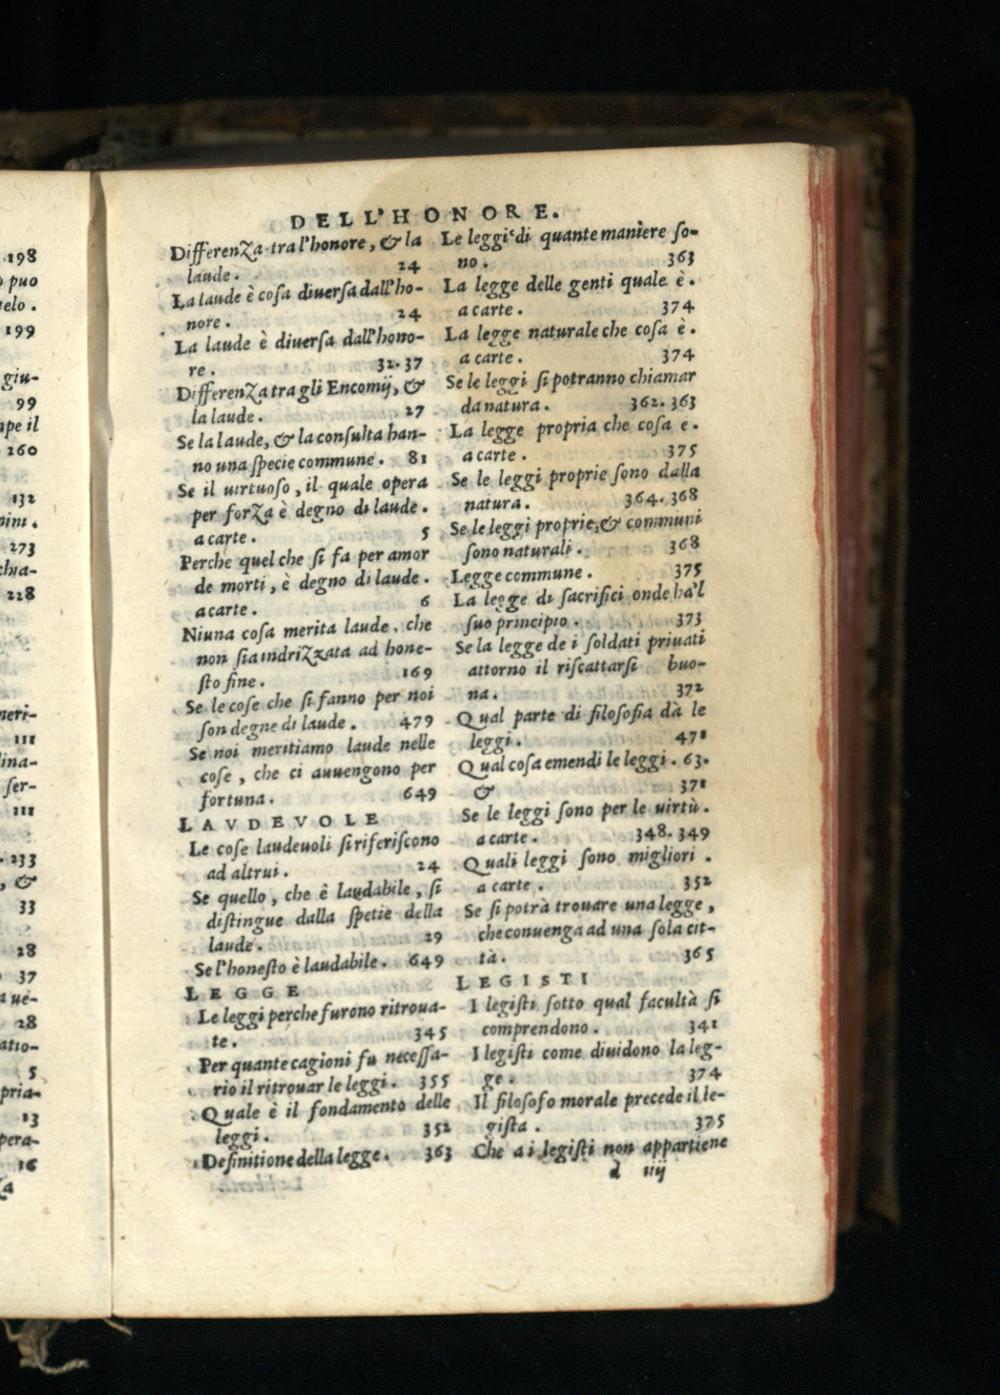 DELL'HONORE.
Differenza tra l'honore, & la
laude. 24
La laude è cosa diuersa dall'ho-
nore. 24
La laude è diuersa dall'hono-
re. 32.37
Differenza tra gli Encomij, &
la laude. 27
Se la laude, & la consulta han-
no una specie commune. 81
Se il uirtuoso, il quale opera
per forza è degno di laude.
a carte. 5
Perche quel che si fa per amor
de morti, è degno di laude.
a carte. 6
Niuna cosa merita laude, che
non sia indrizzata ad hone-
sto fine. 169
Se le cose che si fanno per noi
son degne di laude. 479
Se noi meritiamo laude nelle
cose, che ci auuengono per
fortuna. 649
LAVDEVOLE
Le cose laudeuoli si riferiscono
ad altrui. 24
Se quello, che è laudabile, si
distingue dalla spetie della
laude. 29
Se l'honesto è laudabile. 649
LEGGE
Le leggi perche furono ritroua-
te. 345
Per quante cagioni fu necessa-
rio il ritrouar le leggi. 355
Quale è il fondamento delle
leggi. 352
Definitione della legge. 363
Le leggi di quante maniere so-
no. 363
La legge delle genti quale è.
a carte. 374
La legge naturale che cosa è.
a carte. 374
Se le leggi si potranno chiamar
da natura. 362.363
La legge propria che cosa e.
a carte. 375
Se le leggi proprie sono dalla
natura. 364.368
Se le leggi proprie, & communi
sono naturali. 368
Legge commune. 375
La legge di sacrifici onde ha'l
suo principio. 373
Se la legge de i soldati priuati
attorno il riscattarsi buo-
na. 372
Qual parte di filosofia dà le
leggi. 471
Qual cosa emendi le leggi. 63.
& 371
Se le leggi sono per le uirtù.
a carte. 348.349
Quali leggi sono migliori.
a carte. 352
Se si potrà trouare una legge,
che conuenga ad una sola cit-
tà. 365
LEGISTI
I legisti sotto qual facultà si
comprendono. 341
I legisti come diuidono la leg-
ge. 374
Il filosofo morale precede il le-
gista. 375
Che a i legisti non appartiene
d iiij
198
puo
telo.
199
giu-
99
mpe il
260
132
273
228
neri-
111
dina-
ser-
111
233
, &
33
28
37
ue-
28
5
pria-
13
pera-
16